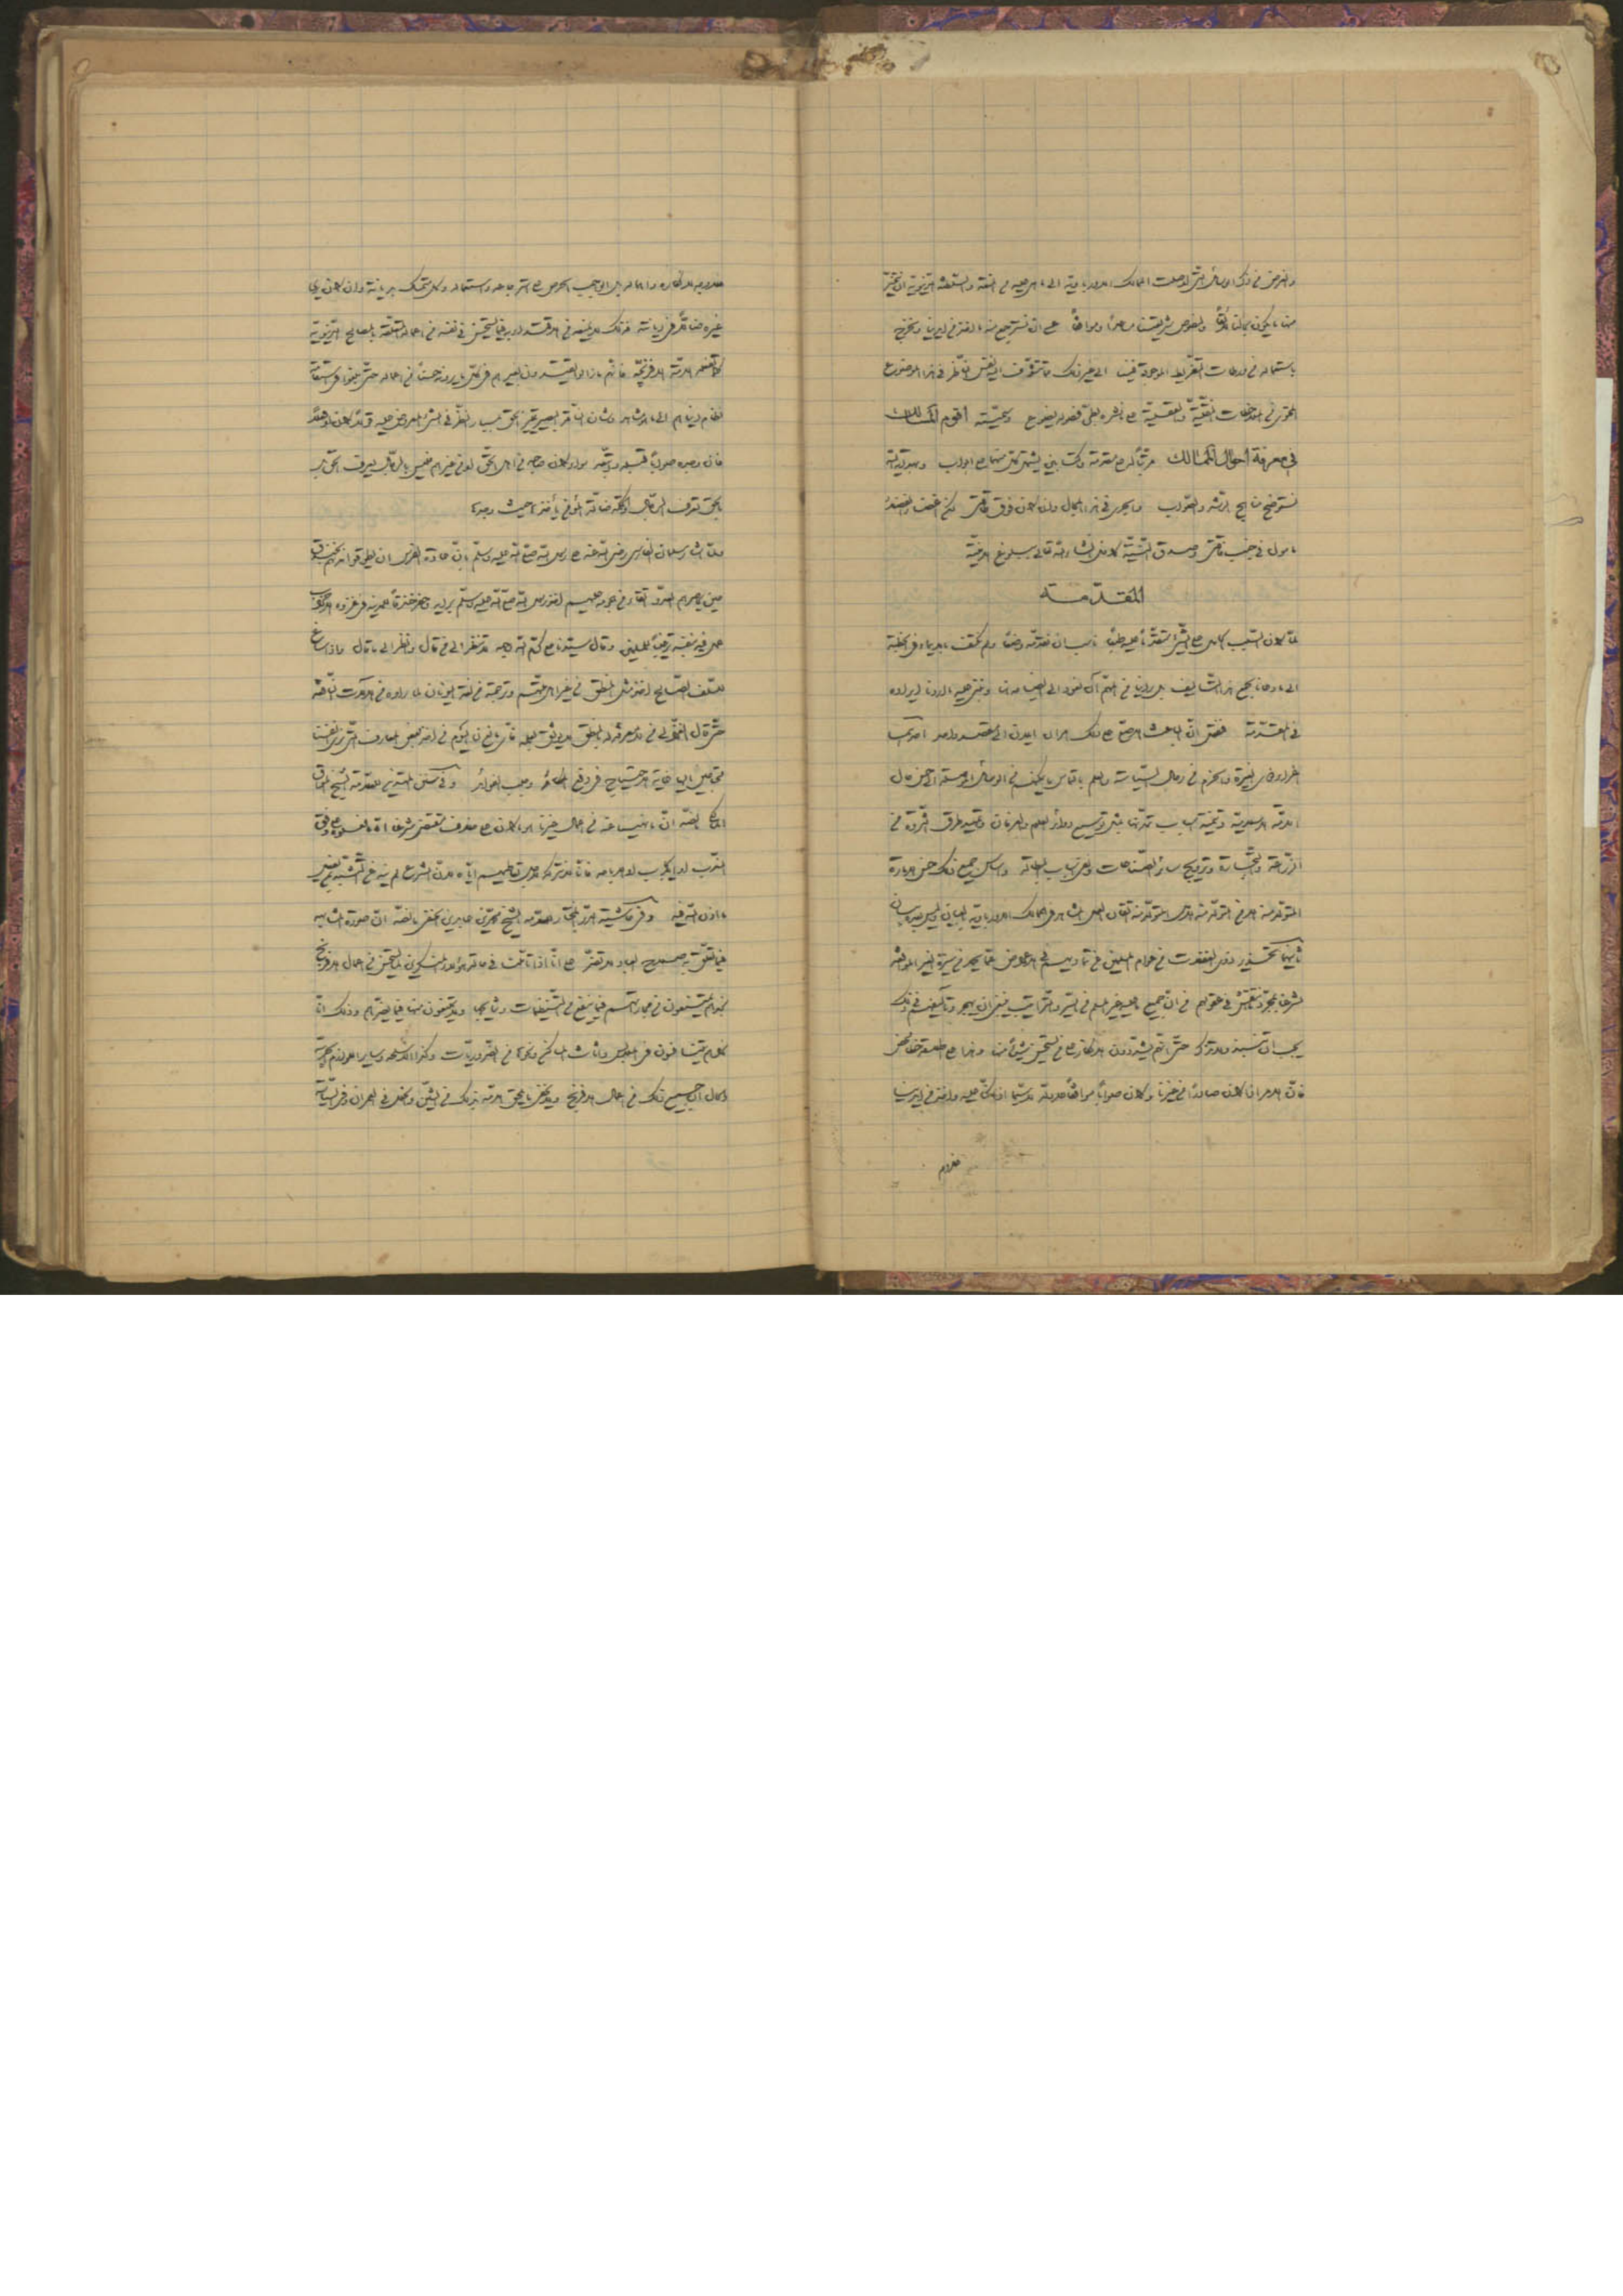 والغرض في ذكر الوسائل التي اوصلت الممالك الاورباوية الى ما هي عليه من المنعة والسلطة الدنيوية ان نتخير
منها ما يكون بحالنا لائقاً ولنصوص شريعتنا مساعداً وموافقاً عسى ان نسترجع منه ما اخذ من ايدينا ونخرج
باستعماله من ورطات التفريط الموجود فينا الى غير ذلك مما تتشوف اليه نفس الناظر في هذا الموضوع
المحتوي من الملاحظات النقلية والعقلية على ما نشره بطي فصوله يضوع وسميته أقوم المسالك
في معرفة أحوال الممالك مرتباً له على مقدمة وكتابين يشتمل كل منهما على ابواب وبهداية الله
نستوضح مناهج الرشد والصواب والجري في هذا المجال وان كان فوق طاقتي لكن غض الفضلاء
مأمول في جنب فاقتي وصدق النية كافل ان شاء الله تعالى ببلوغ الامنية
المقدمة
لما كان السبب الحامل على الشيء متقدماً عليه طبعاً ناسب ان نقدمه وضعاً ولم نكتف بالايماء في الخطبة
الى ما دعانا لجمع هذا التأليف بل رأينا من المهم ان نعود الى ايضاحه هنا ونبني عليه ما اردنا ايراده
في المقدمة فنقول ان الباعث الاصلي على ذلك امران آيلان الى مقصد واحد احدهما
اغراء ذوي الغيرة والحزم من رجال السياسة والعلم بالتماس ما يمكنهم من الوسائل الموصلة الى حسن حال
الامة الاسلامية وتنمية اسباب تمدنها بمثل توسيع دوائر العلوم والعرفان وتمهيد طرق الثروة من
الزراعة والتجارة وترويج سائر الصناعات ونفي اسباب البطالة واساس جميع ذلك حسن الامارة
المتولد منه الامن المتولد منه الامل المتولد منه اتقان العمل المشاهد في الممالك الاورباوية بالعيان وليس بعده بيان
ثانيهما تحذير ذوي الغفلات من عوام المسلمين عن تماديهم في الاعراض عما يحمد من سيرة الغير الموافقة
لشرعنا بمجرد ما انتقش في عقولهم من ان جميع ما عليه غير المسلم من السير والتراتيب ينبغي ان يهجر وتآليفهم في ذلك
يجب ان تنبذ ولا تذكر حتى انهم يشددون الانكار على من يستحسن شيئاً منها وهذا على اطلاقه خطأ محض
فان الامر اذا كان صادراً من غيرنا وكان صواباً موافقاً للادلة لاسيما اذا كنا عليه واخذ من ايدينا
فلا وجه لانكاره واهماله بل الواجب الحرص على استرجاعه واستعماله وكل متمسك بديانة وان كان يرى
غيره ضالاً في ديانته فذلك لا يمنعه من الاقتداء به فيما يستحسن في نفسه من اعماله المتعلقة بالمصالح الدنيوية
كما تفعله الامة الافرنجية فانهم ما زالوا يقتدون بغيرهم في كل ما يرونه حسناً من اعماله حتى بلغوا في استقامة
نظام دنياهم الى ما هو مشاهد وشأن الناقد البصير تمييز الحق بمسبار النظر في الشيء المعروض عليه قولاً كان او فعلاً
فان وجده صواباً قبله واتبعه سواء كان صاحبه من اهل الحق او من غيرهم فليس بالرجال يعرف الحق بل
بالحق تعرف الرجال والحكمة ضالة المؤمن يأخذها حيث وجدها
ولما اشار سلمان الفارسي رضي الله عنه على رسول الله صلى الله عليه وسلم بان عادة الفرس ان يطوقوا مدنهم بخندق
حين يحاصرهم العدو اتقاء من هجومه عليهم اخذ رسول الله صلى الله عليه وسلم برأيه وحفر خندقاً للمدينة في غزوة الاحزاب
عمل فيه بنفسه ترغيباً للمسلمين وقال سيدنا علي كرم الله وجهه لا تنظر الى من قال وانظر الى ما قال واذا ساغ
للسلف الصالح اخذ مثل المنطق من غير اهل ملتهم وترجمته من لغة اليونان لما رأوه من الآلات النافعة
حتى قال الغزالي من لا معرفة له بالمنطق لا يوثق بعلمه فأي مانع لنا اليوم من اخذ بعض المعارف التي نرى انفسنا
محتاجين اليها غاية الاحتياج في دفع المكائد وجلب الفوائد وفي سنن المهتدين للعلامة الشيخ المواق
المالكي ما نصه ان ما نهينا عنه من اعمال غيرنا هو ما كان على خلاف مقتضى شرعنا اما ما فعلوه على وفق
الندب او الايجاب او الاباحة فانا لا نتركه لاجل تعاطيهم اياه لان الشرع لم ينه عن التشبه بمن يفعل
ما اذن الله فيه وفي حاشية الدر المختار للعلامة الشيخ محمد بن عابدين الحنفي ما نصه ان صورة المشابهة
فيما تعلق به صلاح العباد لا تضر على انا اذا تأملنا في حالة هؤلاء المنكرين لما يستحسن من اعمال الافرنج
نجدهم يمتنعون من مجاراتهم فيما ينفع من التنظيمات ونتائجها ولا يمتنعون منها فيما يضرهم وذلك انا
نراهم يتنافسون في الملابس واثاث المساكن ونحوها من الضروريات وكذا الاسلحة وسائر اللوازم الحربية
والحال ان جميع ذلك من اعمال الافرنج ولا يخفى ما يلحق الامة بذلك من الشين والخلل في العمران وفي السياسة
فلا وجه